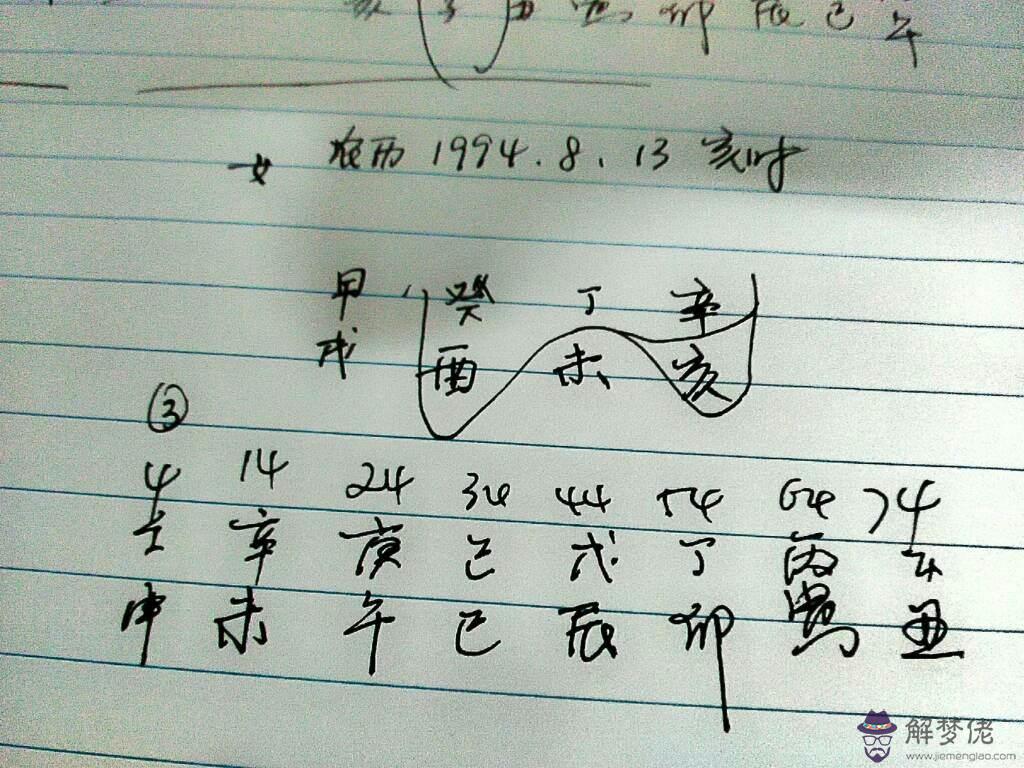 卯 辰 巳 午
女 农历 1994.8.13 亥时
甲 癸 丁 辛
戌 酉 未 亥
③
4 14 24 34 44 54 64 74
壬 辛 庚 己 戊 丁 丙 乙
申 未 午 巳 辰 卯 寅 丑
解梦佬
www.jiemenglao.com